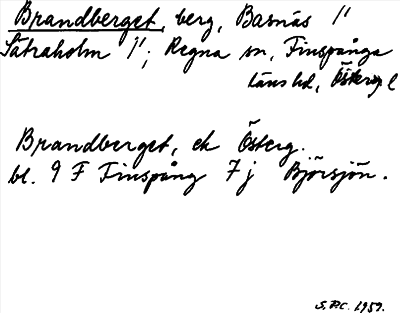 Brandberget, berg, Basnäs 1/1
Sätraholm 1/1; Regna sn, Finspånga
läns hd, Österg l
Brandberget, ek Österg.
bl. 9 F Finspång 7 j Björsjön.
1959.